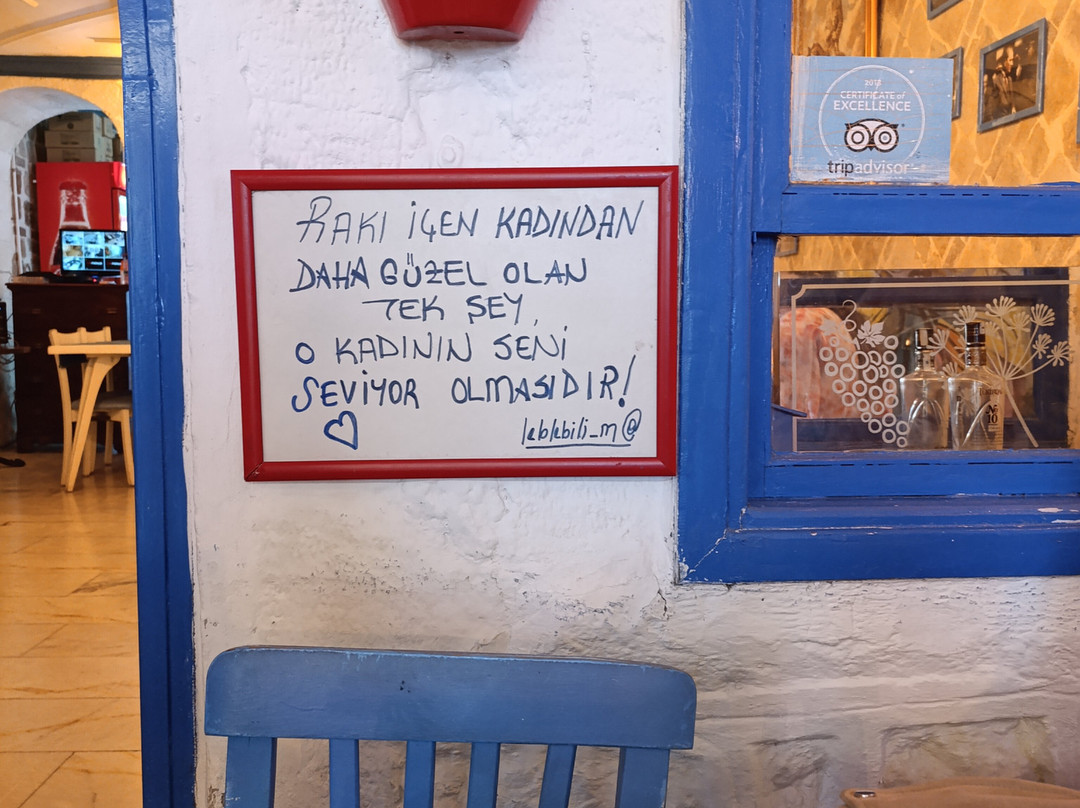 2013
CERTIFICATE of
EXCELLENCE
tripadvisor
RAKI İÇEN KADINDAN
DAHA GÜZEL OLAN
TEK ŞEY,
O KADININ SENİ
SEVİYOR OLMASIDIR!
leblebili_m@
No
10